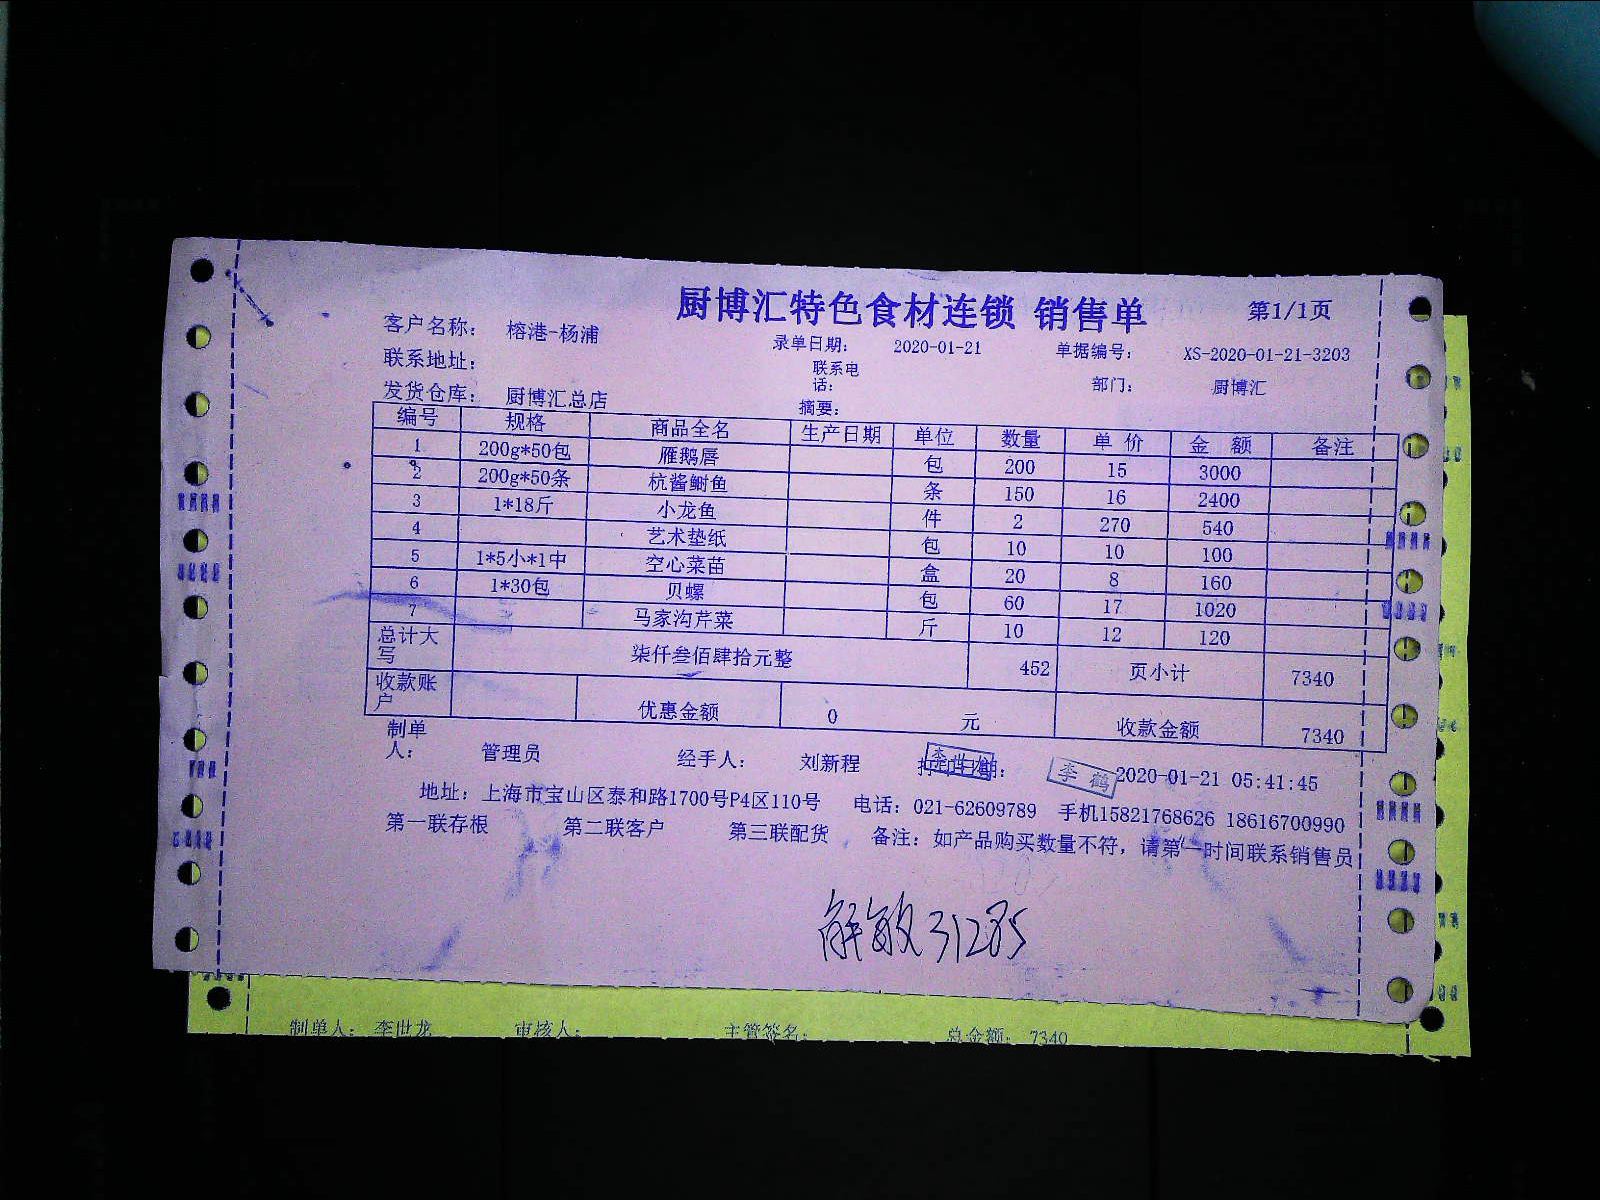 厨博汇特色食材连锁 销售单 第1/1页
客户名称： 榕港-杨浦 录单日期： 2020-01-21 单据编号： XS-2020-01-21-3203
联系地址： 联系电话： 部门： 厨博汇
发货仓库： 厨博汇总店 摘要：
编号 规格 商品全名 生产日期 单位 数量 单 价 金 额 备注
1 200g*50包 雁鹅唇 包 200 15 3000
2 200g*50条 杭酱鲥鱼 条 150 16 2400
3 1*18斤 小龙鱼 件 2 270 540
4 艺术垫纸 包 10 10 100
5 1*5小*1中 空心菜苗 盒 20 8 160
6 1*30包 贝螺 包 60 17 1020
7 马家沟芹菜 斤 10 12 120
总计大写 柒仟叁佰肆拾元整 452 页小计 7340
收款账户 优惠金额 0 元 收款金额 7340
制单人： 管理员 经手人： 刘新程 打印日期： 李世龙 李鹤 2020-01-21 05:41:45
地址：上海市宝山区泰和路1700号P4区110号 电话：021-62609789 手机15821768626 18616700990
第一联存根 第二联客户 第三联配货 备注：如产品购买数量不符，请第一时间联系销售员
解敏 31285
制单人： 李世龙 审核人： 主管签名： 总金额： 7340